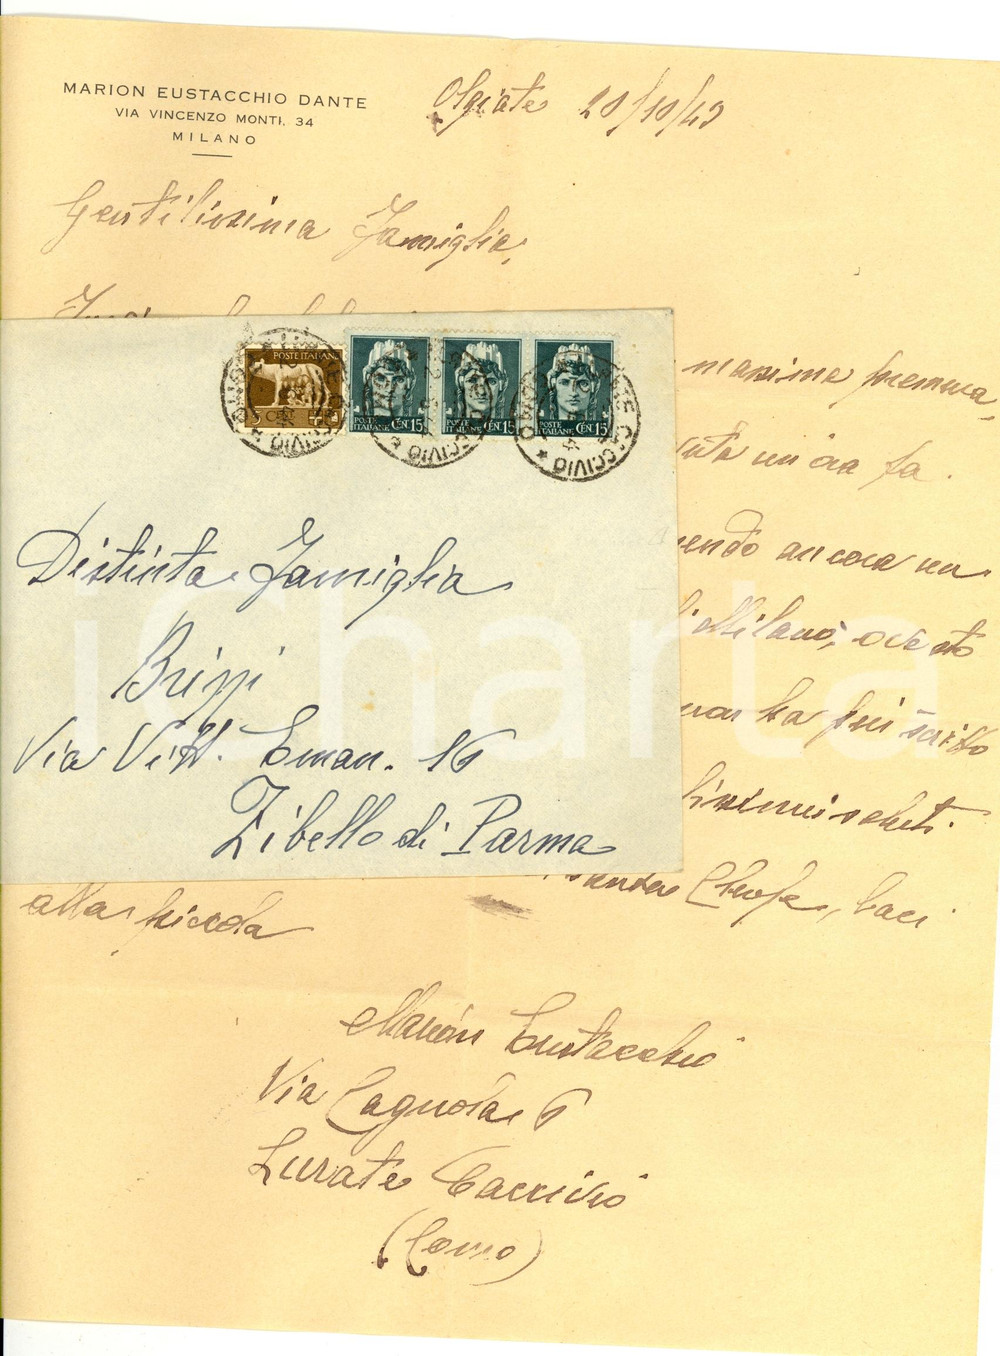 MARION EUSTACCHIO DANTE
VIA VINCENZO MONTI, 34
MILANO
Olgiate 20/10/43
Gentilissima Famiglia,
massima premura,
un'ora fa.
ancora un
Milano, ove sto
non ha più scritto
saluti.
baci
POSTE ITALIANE
CENT
POSTE ITALIANE CEN. 15
POSTE ITALIANE CEN. 15
POSTE ITALIANE CEN. 15
LURATE CACCIVIO
Distinta Famiglia
Brizzi
Via Vitt. Eman. 16
Zibello di Parma
iCharta
alla piccola
Marion Eustacchio
Via Cagnola 6
Lurate Caccivio
(Como)